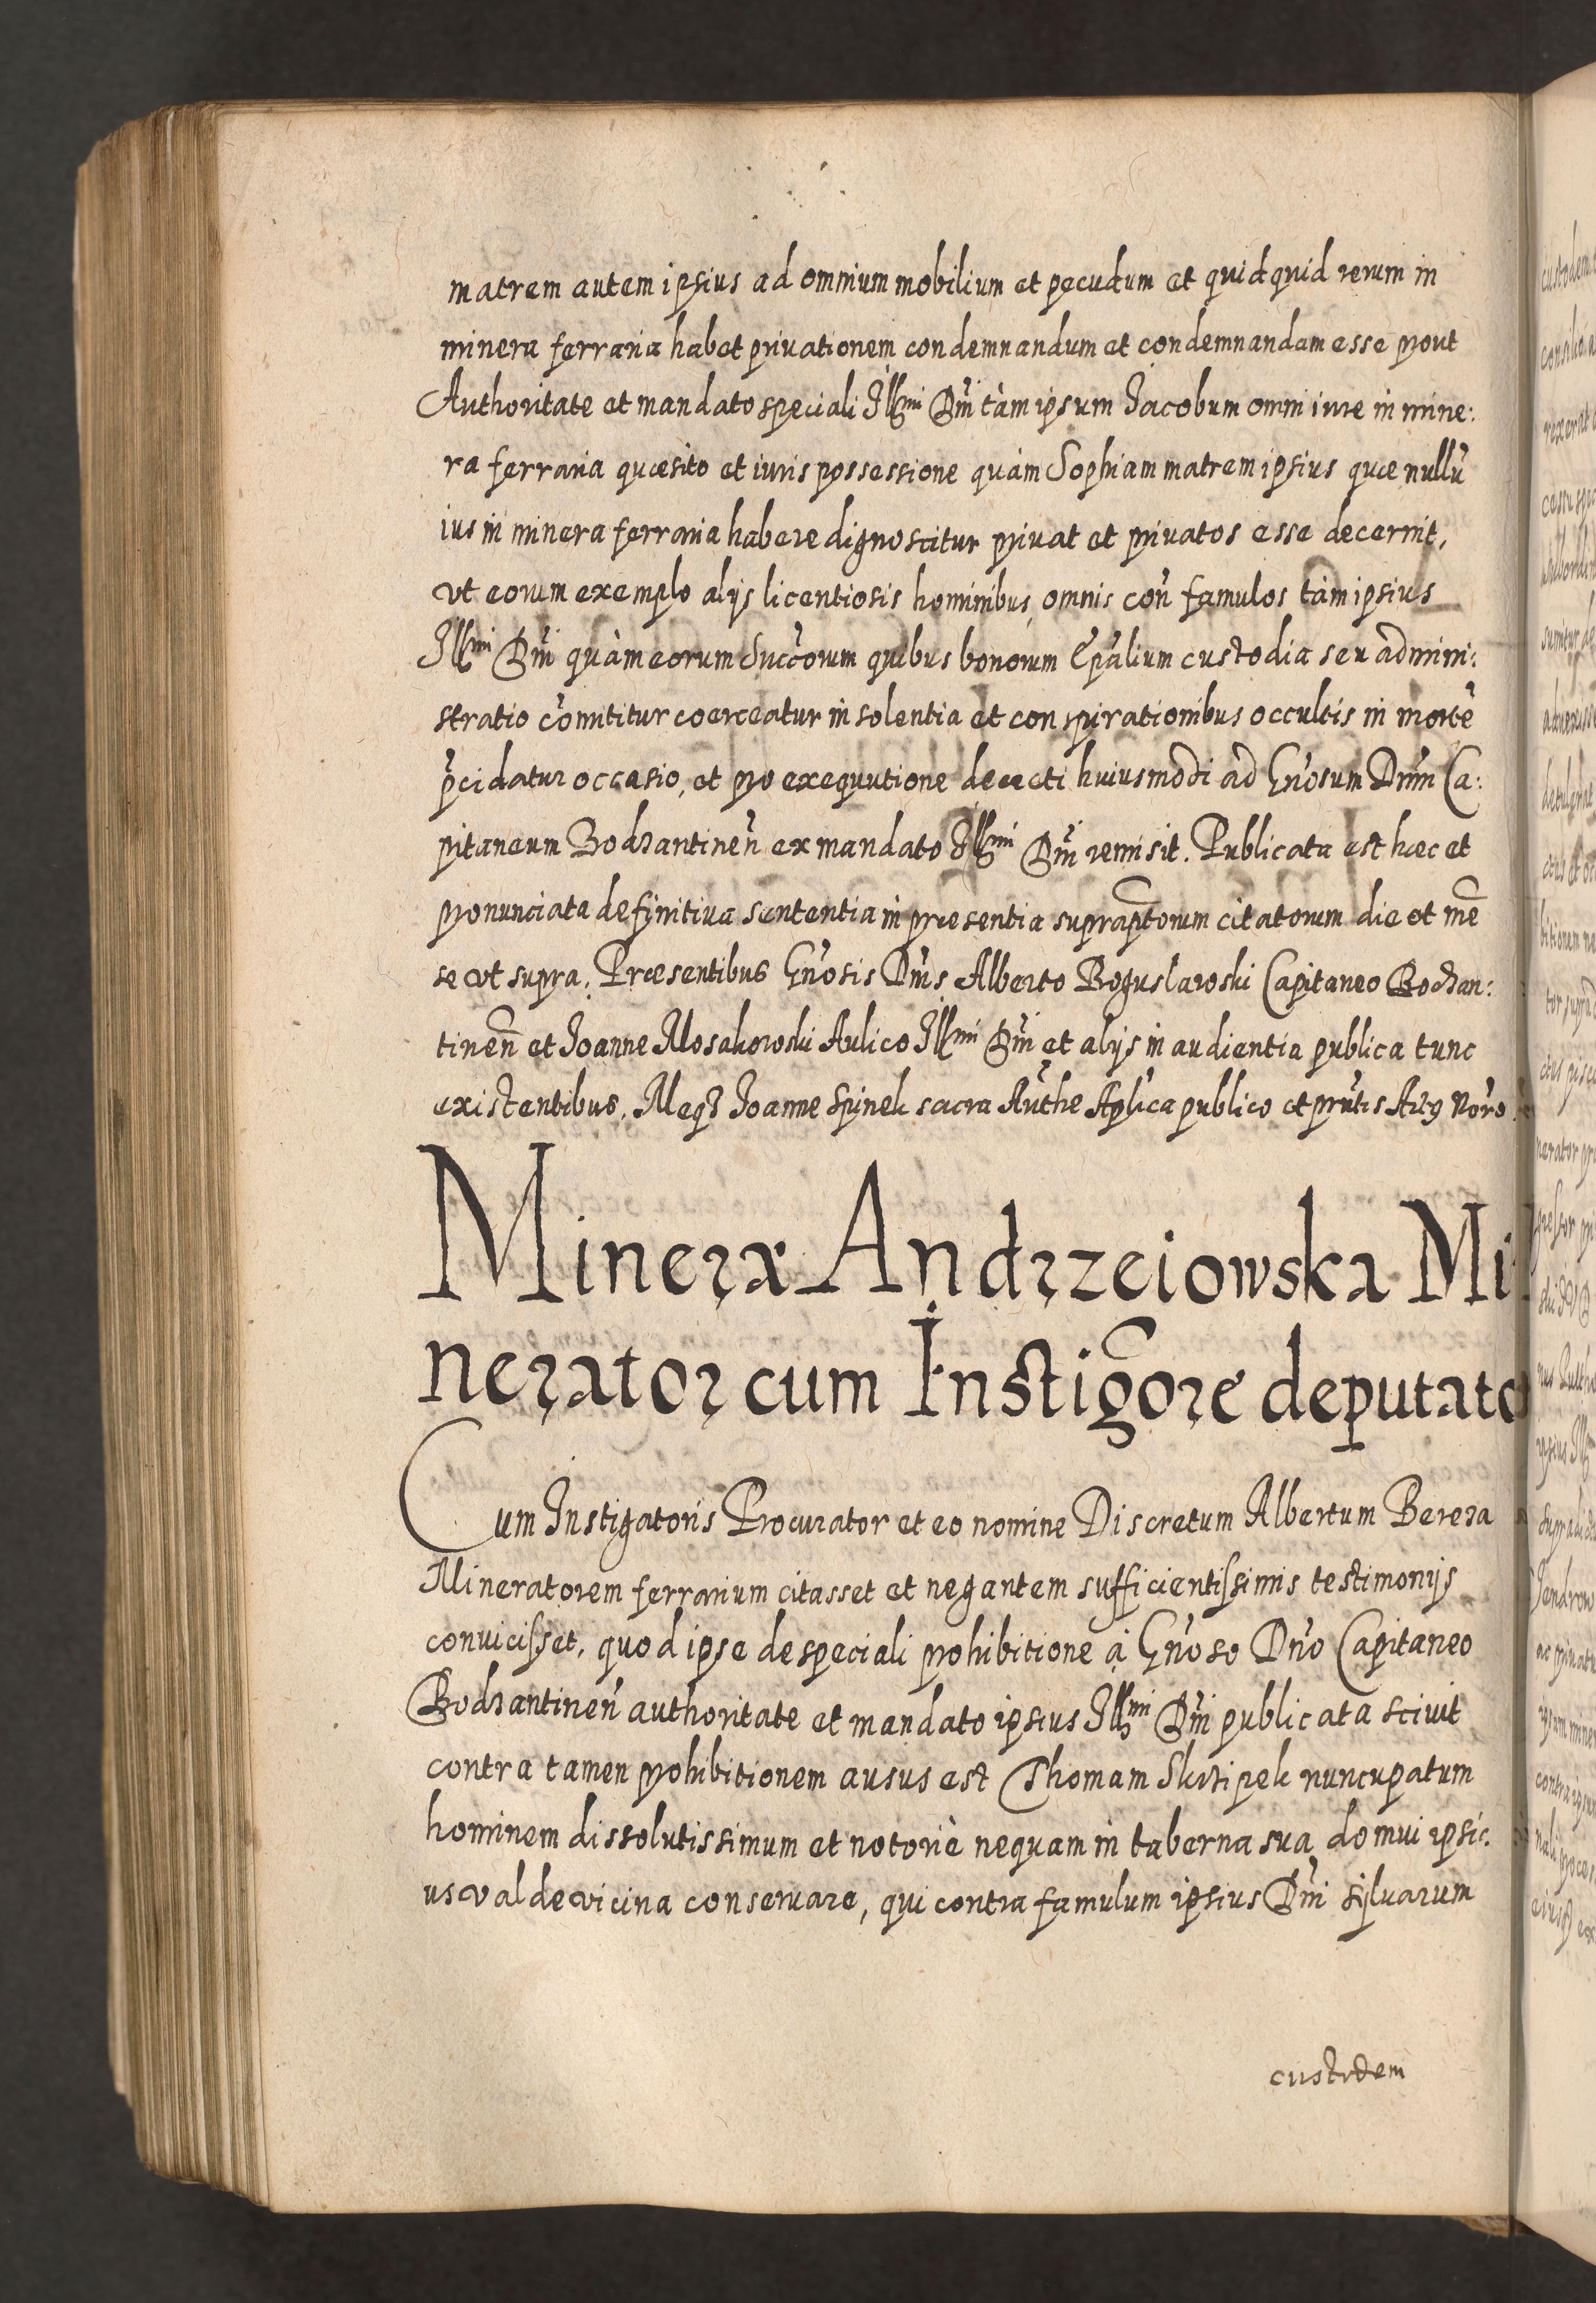 matrem autem ipsius ad omnium mobilium et pecudum et quidquid rerum in
minera ferraria habet priuationem condemnandum et condemnandam esse prout
Authoritate et mandato speciali Illmi Dni tàm ipsum Jacobum omni iure in mine:
ra ferraria quæsito et iuris possessione quàm Sophiam matrem ipsius quæ nullũ
ius in minera ferraria habere dignoscitur priuat et priuatos esse decernit,
vt eorum exemplo alijs licentiosis hominibus omnis con̄ famulos tàm ipsius
Illmi Dni quàm eorum Succ̄orum quibus bonorum Ep̄alium custodia seu admini:
stratio com̄ititur coerceatur insolentia et conspirationibus occultis in mortē
p̄cidatur occasio, et pro exequutione decreti huiusmodi ad Gn̄osum Dnm̄ Ca:
pitaneum Bodzantinen̄ ex mandato Illmi Dni remisit. Publicata est hæc et
pronunciata definitiua sententia in præsentia suprap̄torum citatorum die et mē
se vt supra. Præsentibus Gn̄osis Dn̄is Alberto Boguslawski Capitaneo Bodzan:
tinen̄ et Joanne Mosakowski Aulico Illmi Dni et alijs in audientia publica tunc
existentibus. Meq3 Joanne Spinek sacra Auth̄e Ap̄lica publico et prn̄tis Actg Nor̄o.
Minera Andrzeiowska Mi:
nerator cum Instig̃ore deputato
Cum Instigatoris Procurator et eo nomine Discretum Albertum Bereza
Mineratorem ferrarium citasset et negantem sufficientissimis testimonijs
conuicisset, quod ipse de speciali prohibitione à Gn̄oso Dn̄o Capitaneo
Bodzantinen̄ authoritate et mandato ipsius Illmi Dni publicata sciuit
contra tamen prohibitionem ausus est Thomam Skrzipek nuncupatum
hominem dissolutissimum et notoriè nequam in taberna sua domui ipsi:
us valde vicina conseruare, qui contra famulum ipsius Dni syluarum
custodem